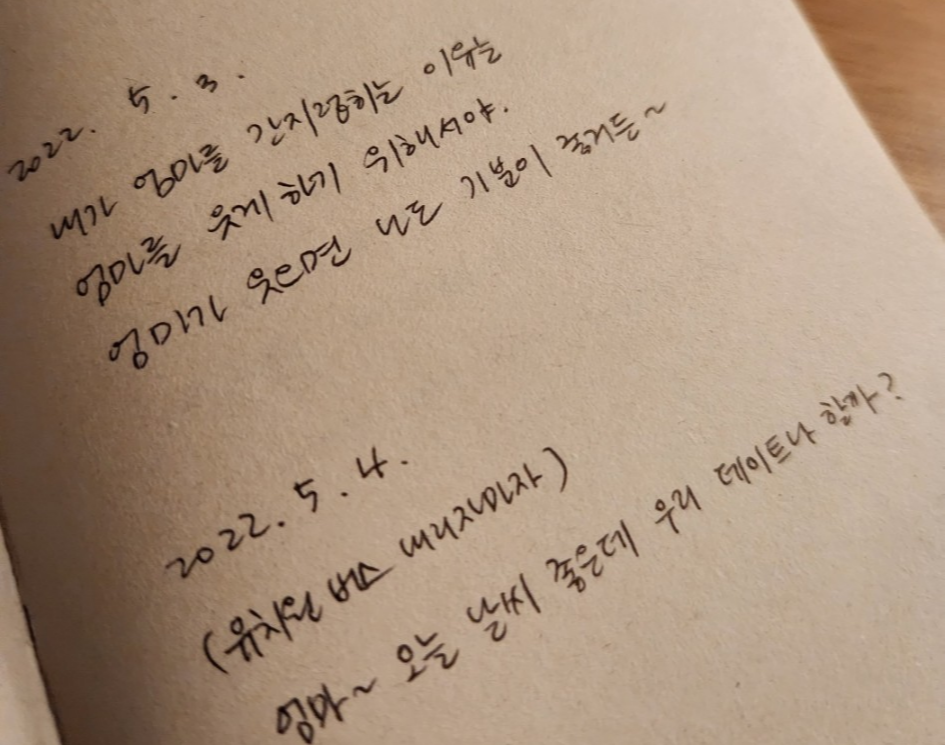 2022. 5. 3.
내가 엄마를 간지럽히는 이유는
엄마를 웃게 하기 위해서야.
엄마가 웃으면 나도 기분이 좋거든~
2022. 5. 4.
(유치원 버스 내리자마자)
엄마~ 오늘 날씨 좋은데 우리 데이트나 할까?